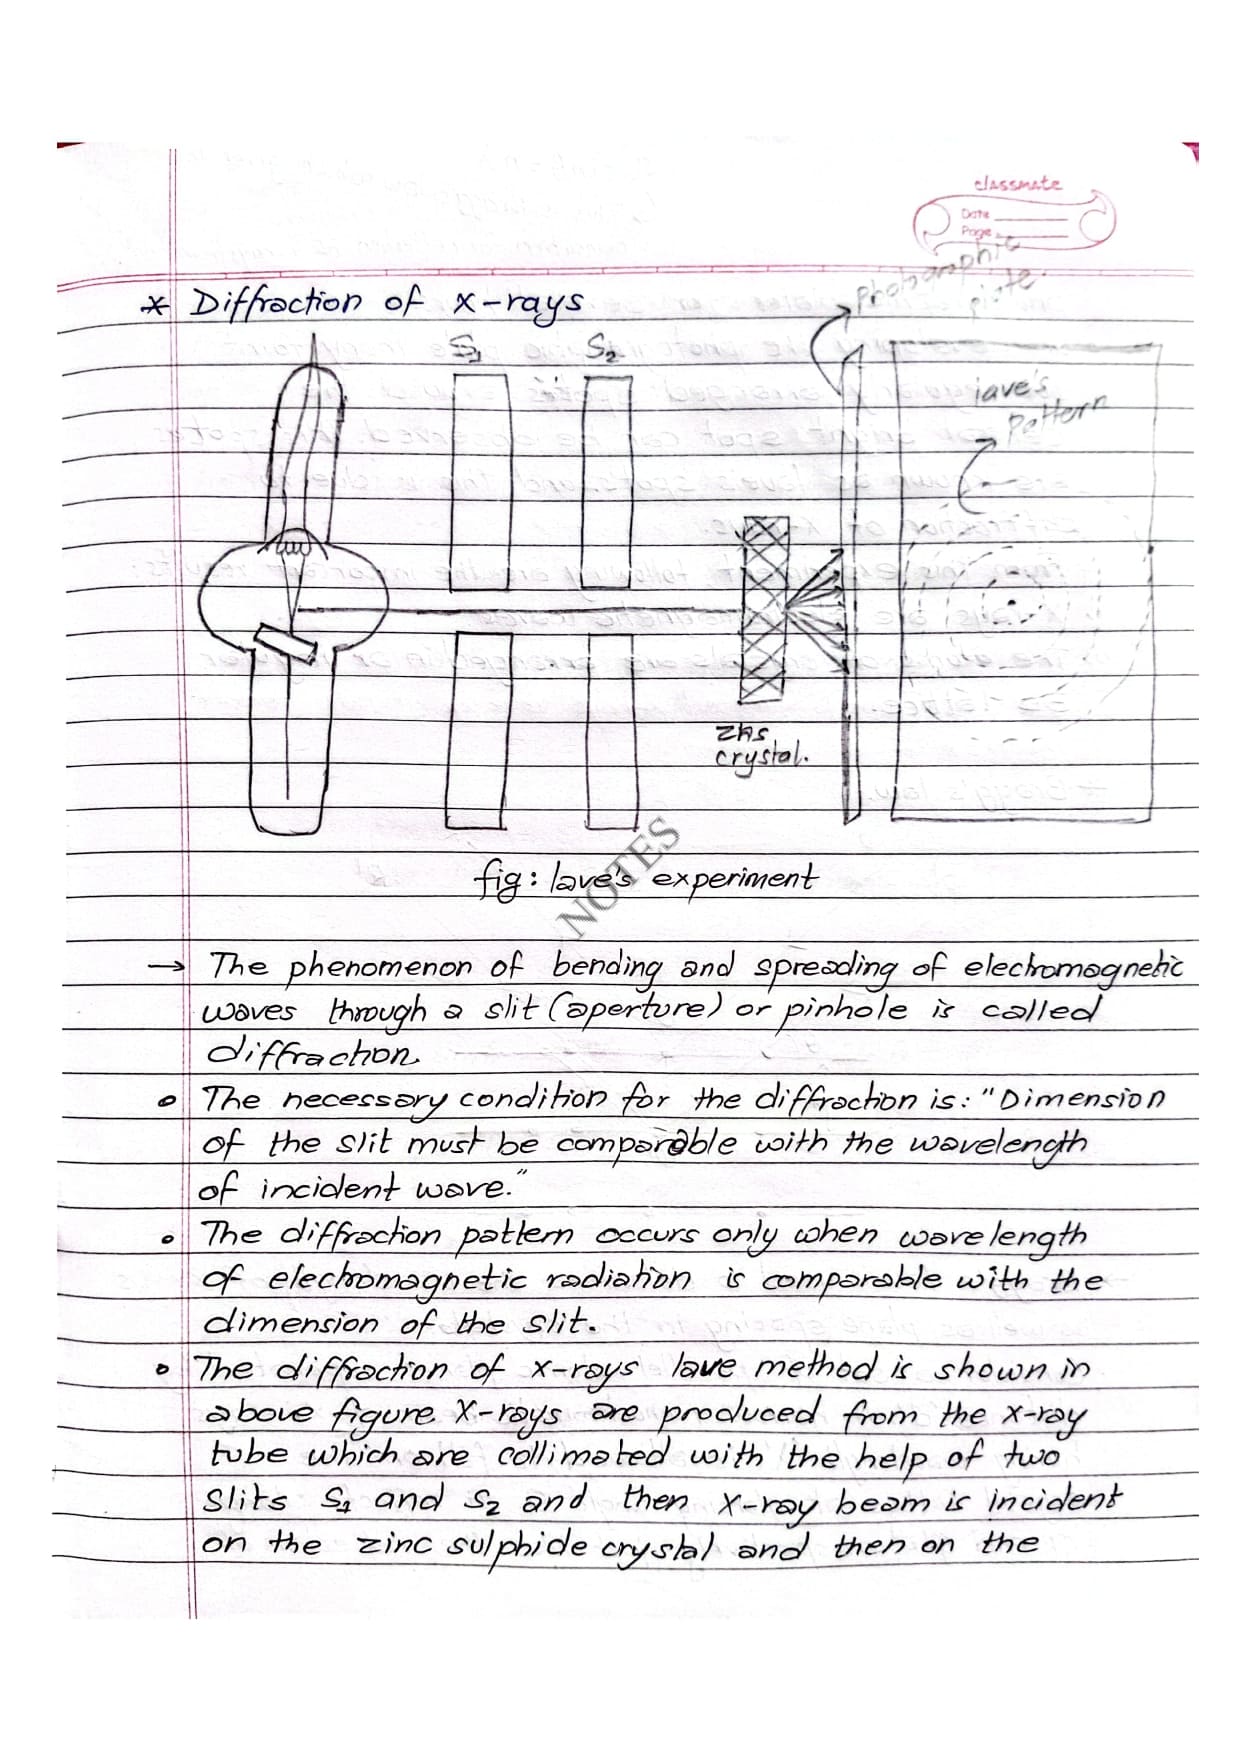 classmate
Date
Page
* Diffraction of x-rays
Photographic
plate.
S1 S2
lave's
pattern
zns
crystal.
fig: lave's experiment
NOTES
→ The phenomenon of bending and spreading of electromagnetic
waves through a slit (aperture) or pinhole is called
diffraction.
• The necessary condition for the diffraction is: "Dimension
of the slit must be comparable with the wavelength
of incident wave."
• The diffraction pattern occurs only when wavelength
of electromagnetic radiation is comparable with the
dimension of the slit.
• The diffraction of x-rays lave method is shown in
above figure. X-rays are produced from the x-ray
tube which are collimated with the help of two
slits S1 and S2 and then x-ray beam is incident
on the zinc sulphide crystal and then on the